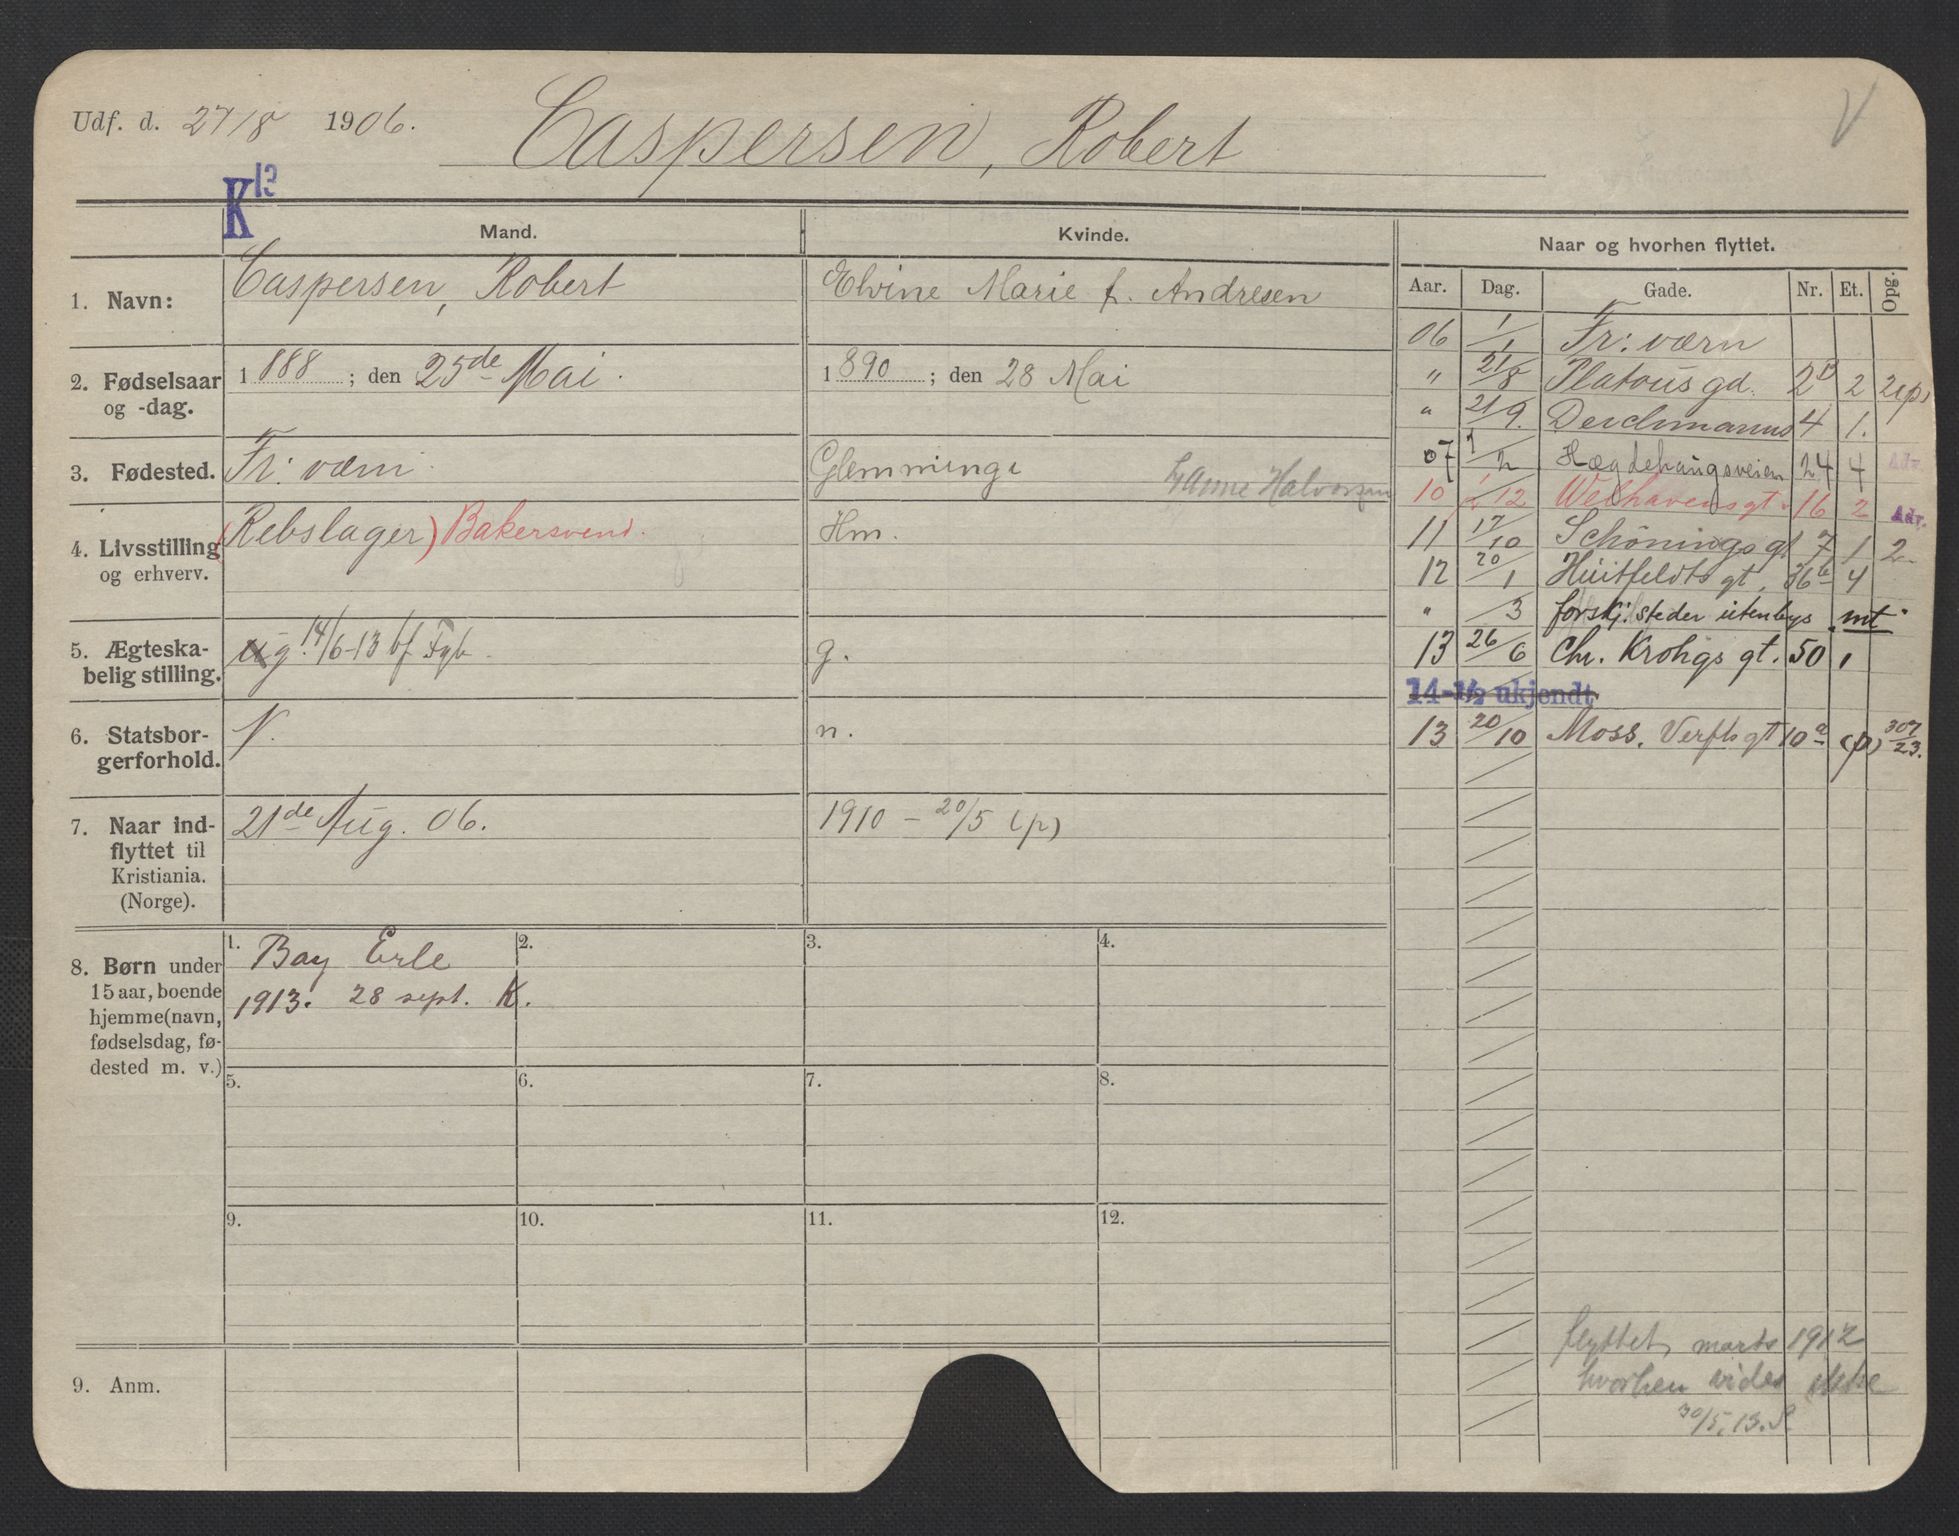 Udf. d. 27/8 1906. Caspersen, Robert V
K 13
Mand. Kvinde. Naar og hvorhen flyttet.
Aar. Dag. Gade. Nr. Et. Opg.
1. Navn: Caspersen, Robert Elvine Marie f. Andresen
2. Fødselsaar og -dag. 1888; den 25de Mai. 1890; den 28 Mai
3. Fødested. Fr: værn Glemminge Halvorsen
4. Livsstilling og erhverv. (Rebslager) Bakersvend. Hm.
5. Ægteska-
belig stilling. ug. 14/6-13 bf Fgb. g.
6. Statsbor-
gerforhold. N. n.
7. Naar ind-
flyttet til
Kristiania.
(Norge). 21de Aug. 06. 1910 – 20/5 (p)
8. Børn under
15 aar, boende
hjemme (navn,
fødselsdag, fø-
dested m. v.)
1. Bay Erle
1913. 28 sept. K.
2.
3.
4.
5.
6.
7.
8.
9.
10.
11.
12.
9. Anm.
06 1/1 Fr: værn
" 21/8 Platous gd. 2B 2 2(p)
" 21/9. Deichmanns 4 1.
07 1/2 Hægdehaugsveien 24 4 Adr.
10 1/12 Welhavens gt. 16 2 Adr.
11 17/10 Schønings gt 7 1 2
12 20/1 Huitfeldts gt. 36b 4
" /3 forskj. steder utenbys mt.
13 26/6 Chr. Krohgs gt. 50 1
14-1/2 ukjendt
13 20/10 Moss. Verfts gt 10a (p) 307/23.
flyttet marts 1912
hvorhen vides ikke
30/5.13.